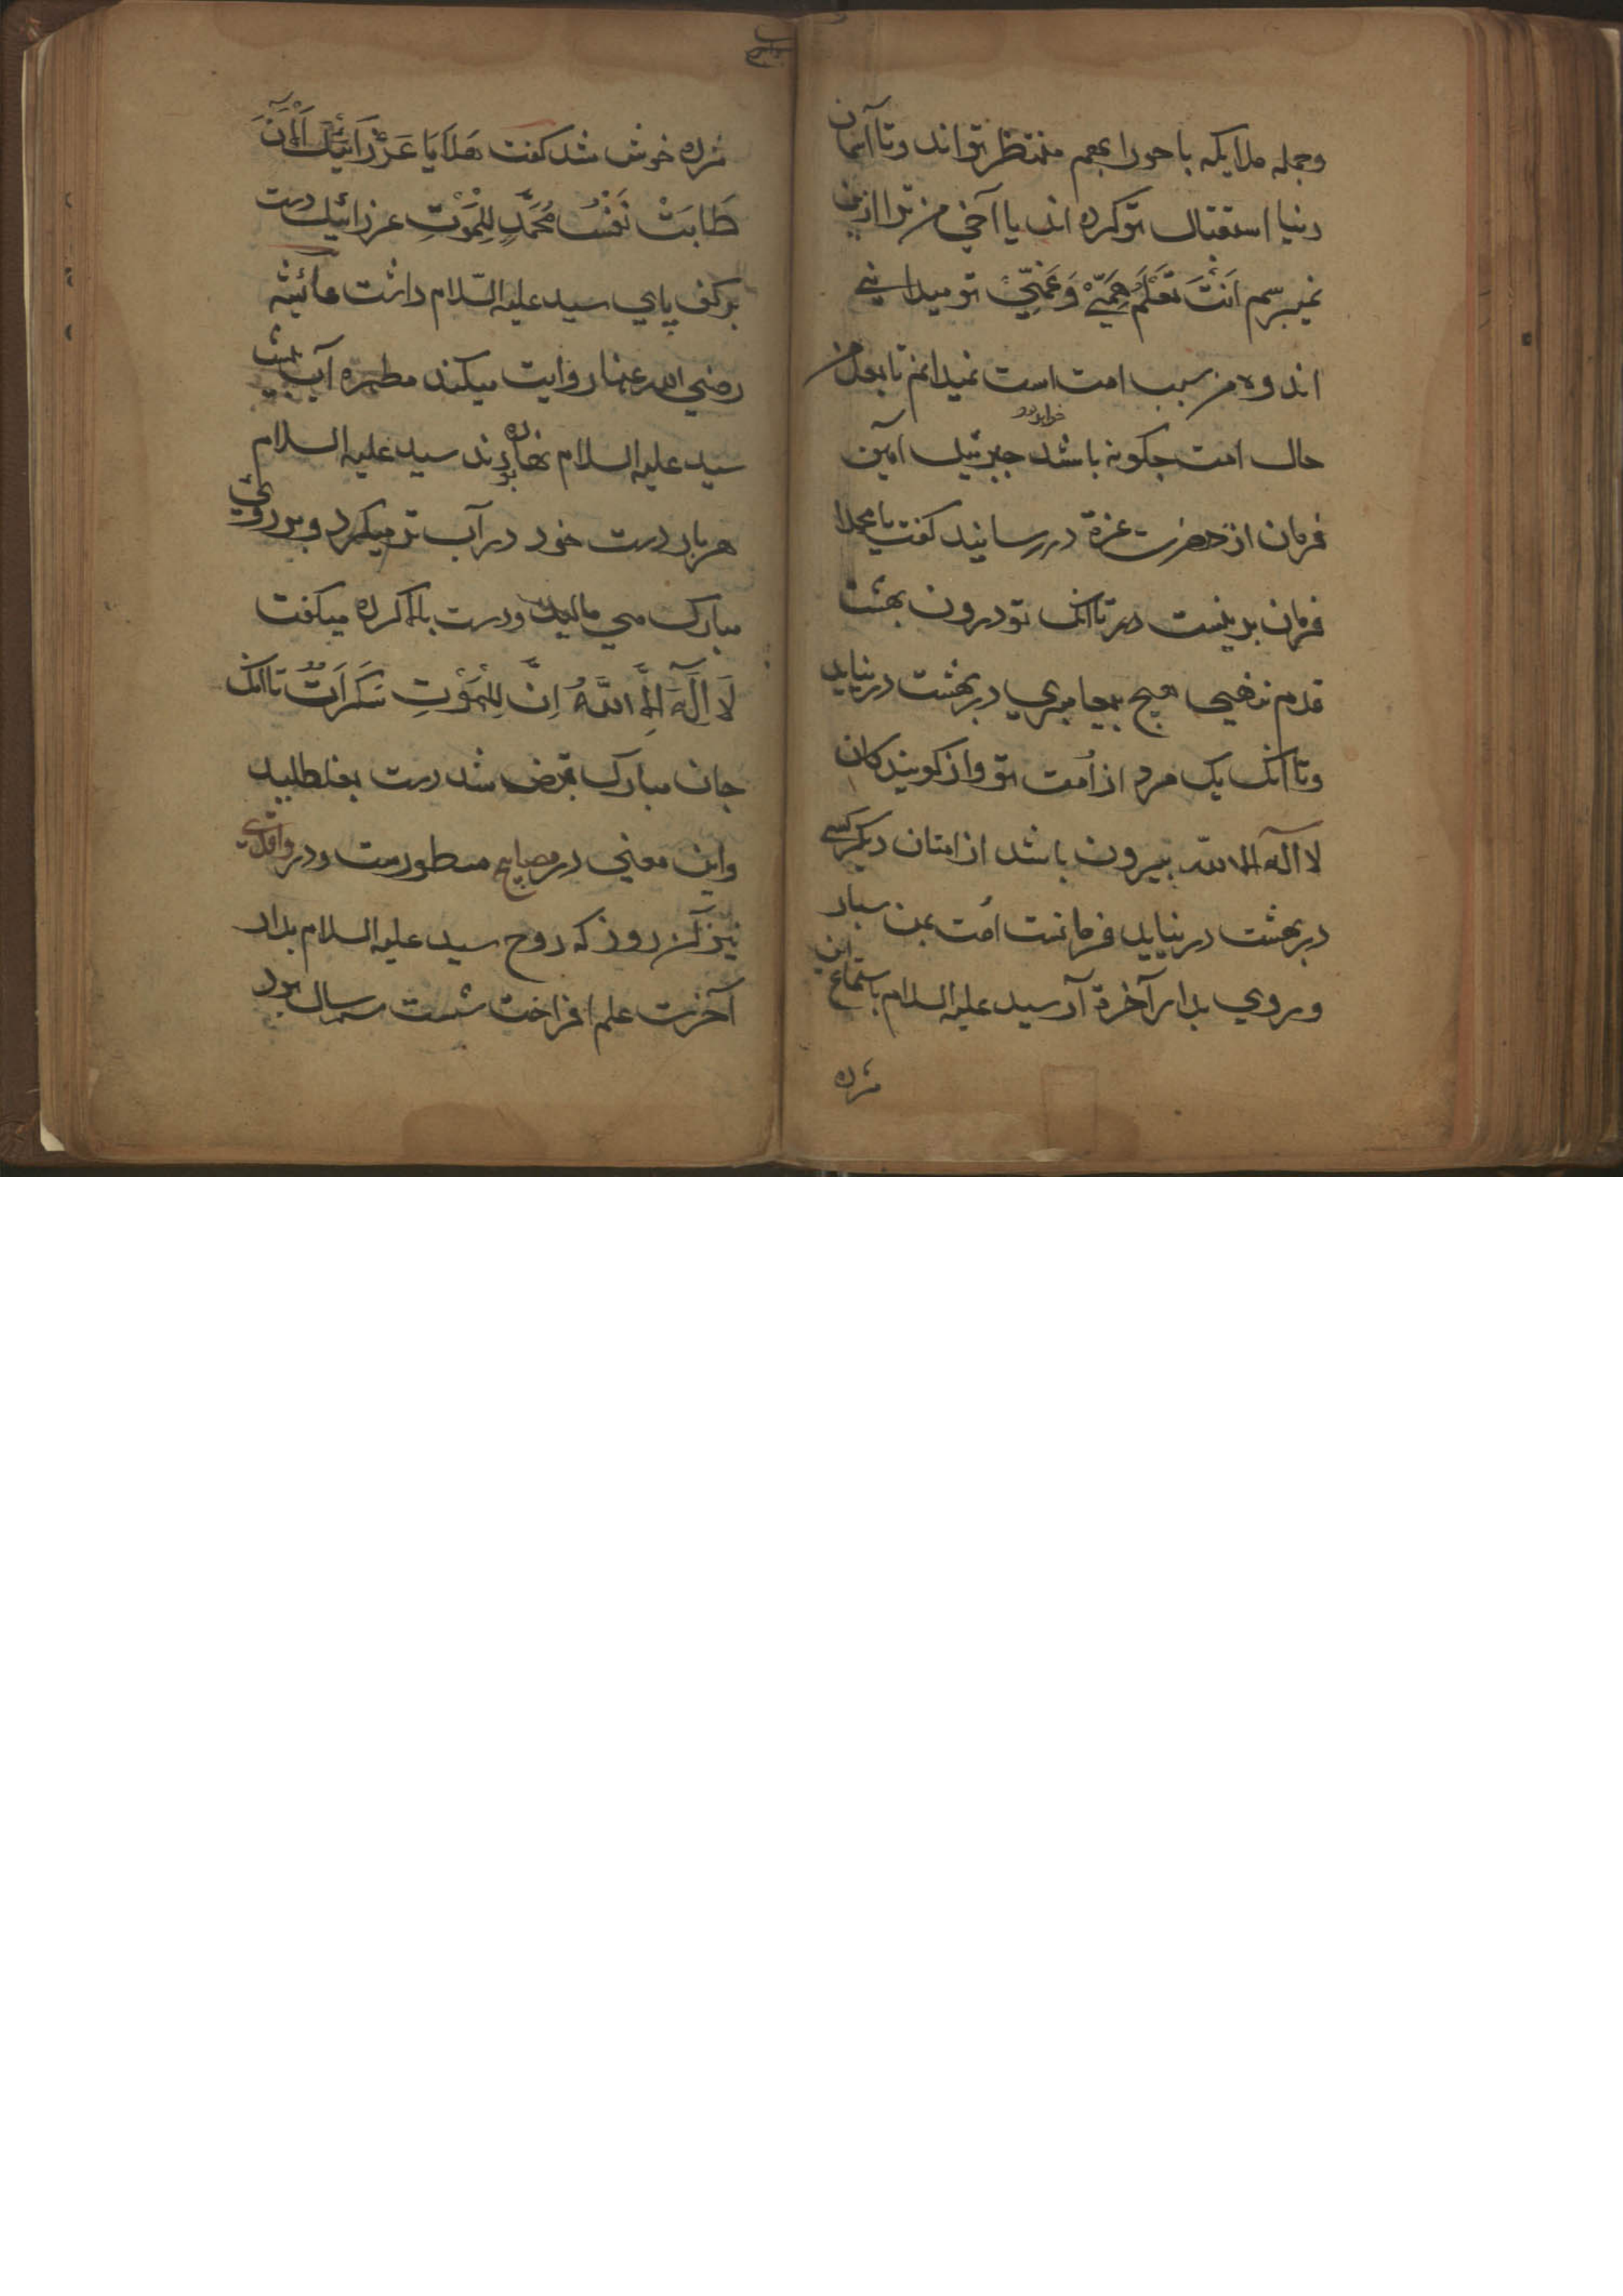 وجمله ملایکه با حورا بعجم منتظر تواند وتا آسمان
دنیا استقبال تو کرده اند یا آخی من ترا ازین
نمیپرسم اَنْتَ تَعْلَمُ هَمّیْ وَغَمّیْ تو میدانی
اندوه من سبب امت است نمیدانم تا بعد من
حال امت چکونه باشد جبرئیل امین
خواهد بود
فرمان از حضرت عزة در رسانید کفت یا محمد
فرمان بدینست تا آنک تو درون بهشت
قدم ننهی هیچ پیغامبری در بهشت در نیاید
وتا آنک یک مرد از اُمت تو واز کویندکان
لا آله الا الله بیرون باشد از امتان دیکر کسی
در بهشت در نیاید فرمانست اُمت بمن سپار
وروی بدار آخرة آر سید علیه السلام باستماع این
مژده
مژده خوش شد کفت هَلَا یَا عَزْرَائیْلُ اَلْآنَ
طَابَتْ نَفْسُ مُحَمَّدٍ لِلْمَوْتِ عزرائیل دست
بر کف پای سید علیه السّلام داشت عائشه
رضی الله عنها روایت میکند مطهره آب پیش
سید علیه السلام نهاده بودند سید علیه السلام
هر بار دست خود در آب تر میکرد وبر روی
مبارک می مالید ودست بالا کرده میکفت
لَا آلَهَ اِلَّا اللهُ اِنَّ لِلْمَوْتِ سَکَرَاتٌ تا آنک
جان مبارک قبض شد دست بغلطید
واین معنی در مصابیح مسطورست ودر واقدی
نیز آن روز که روح سید علیه السلام بدار
آخرت علم افراخت شست سه سال بود